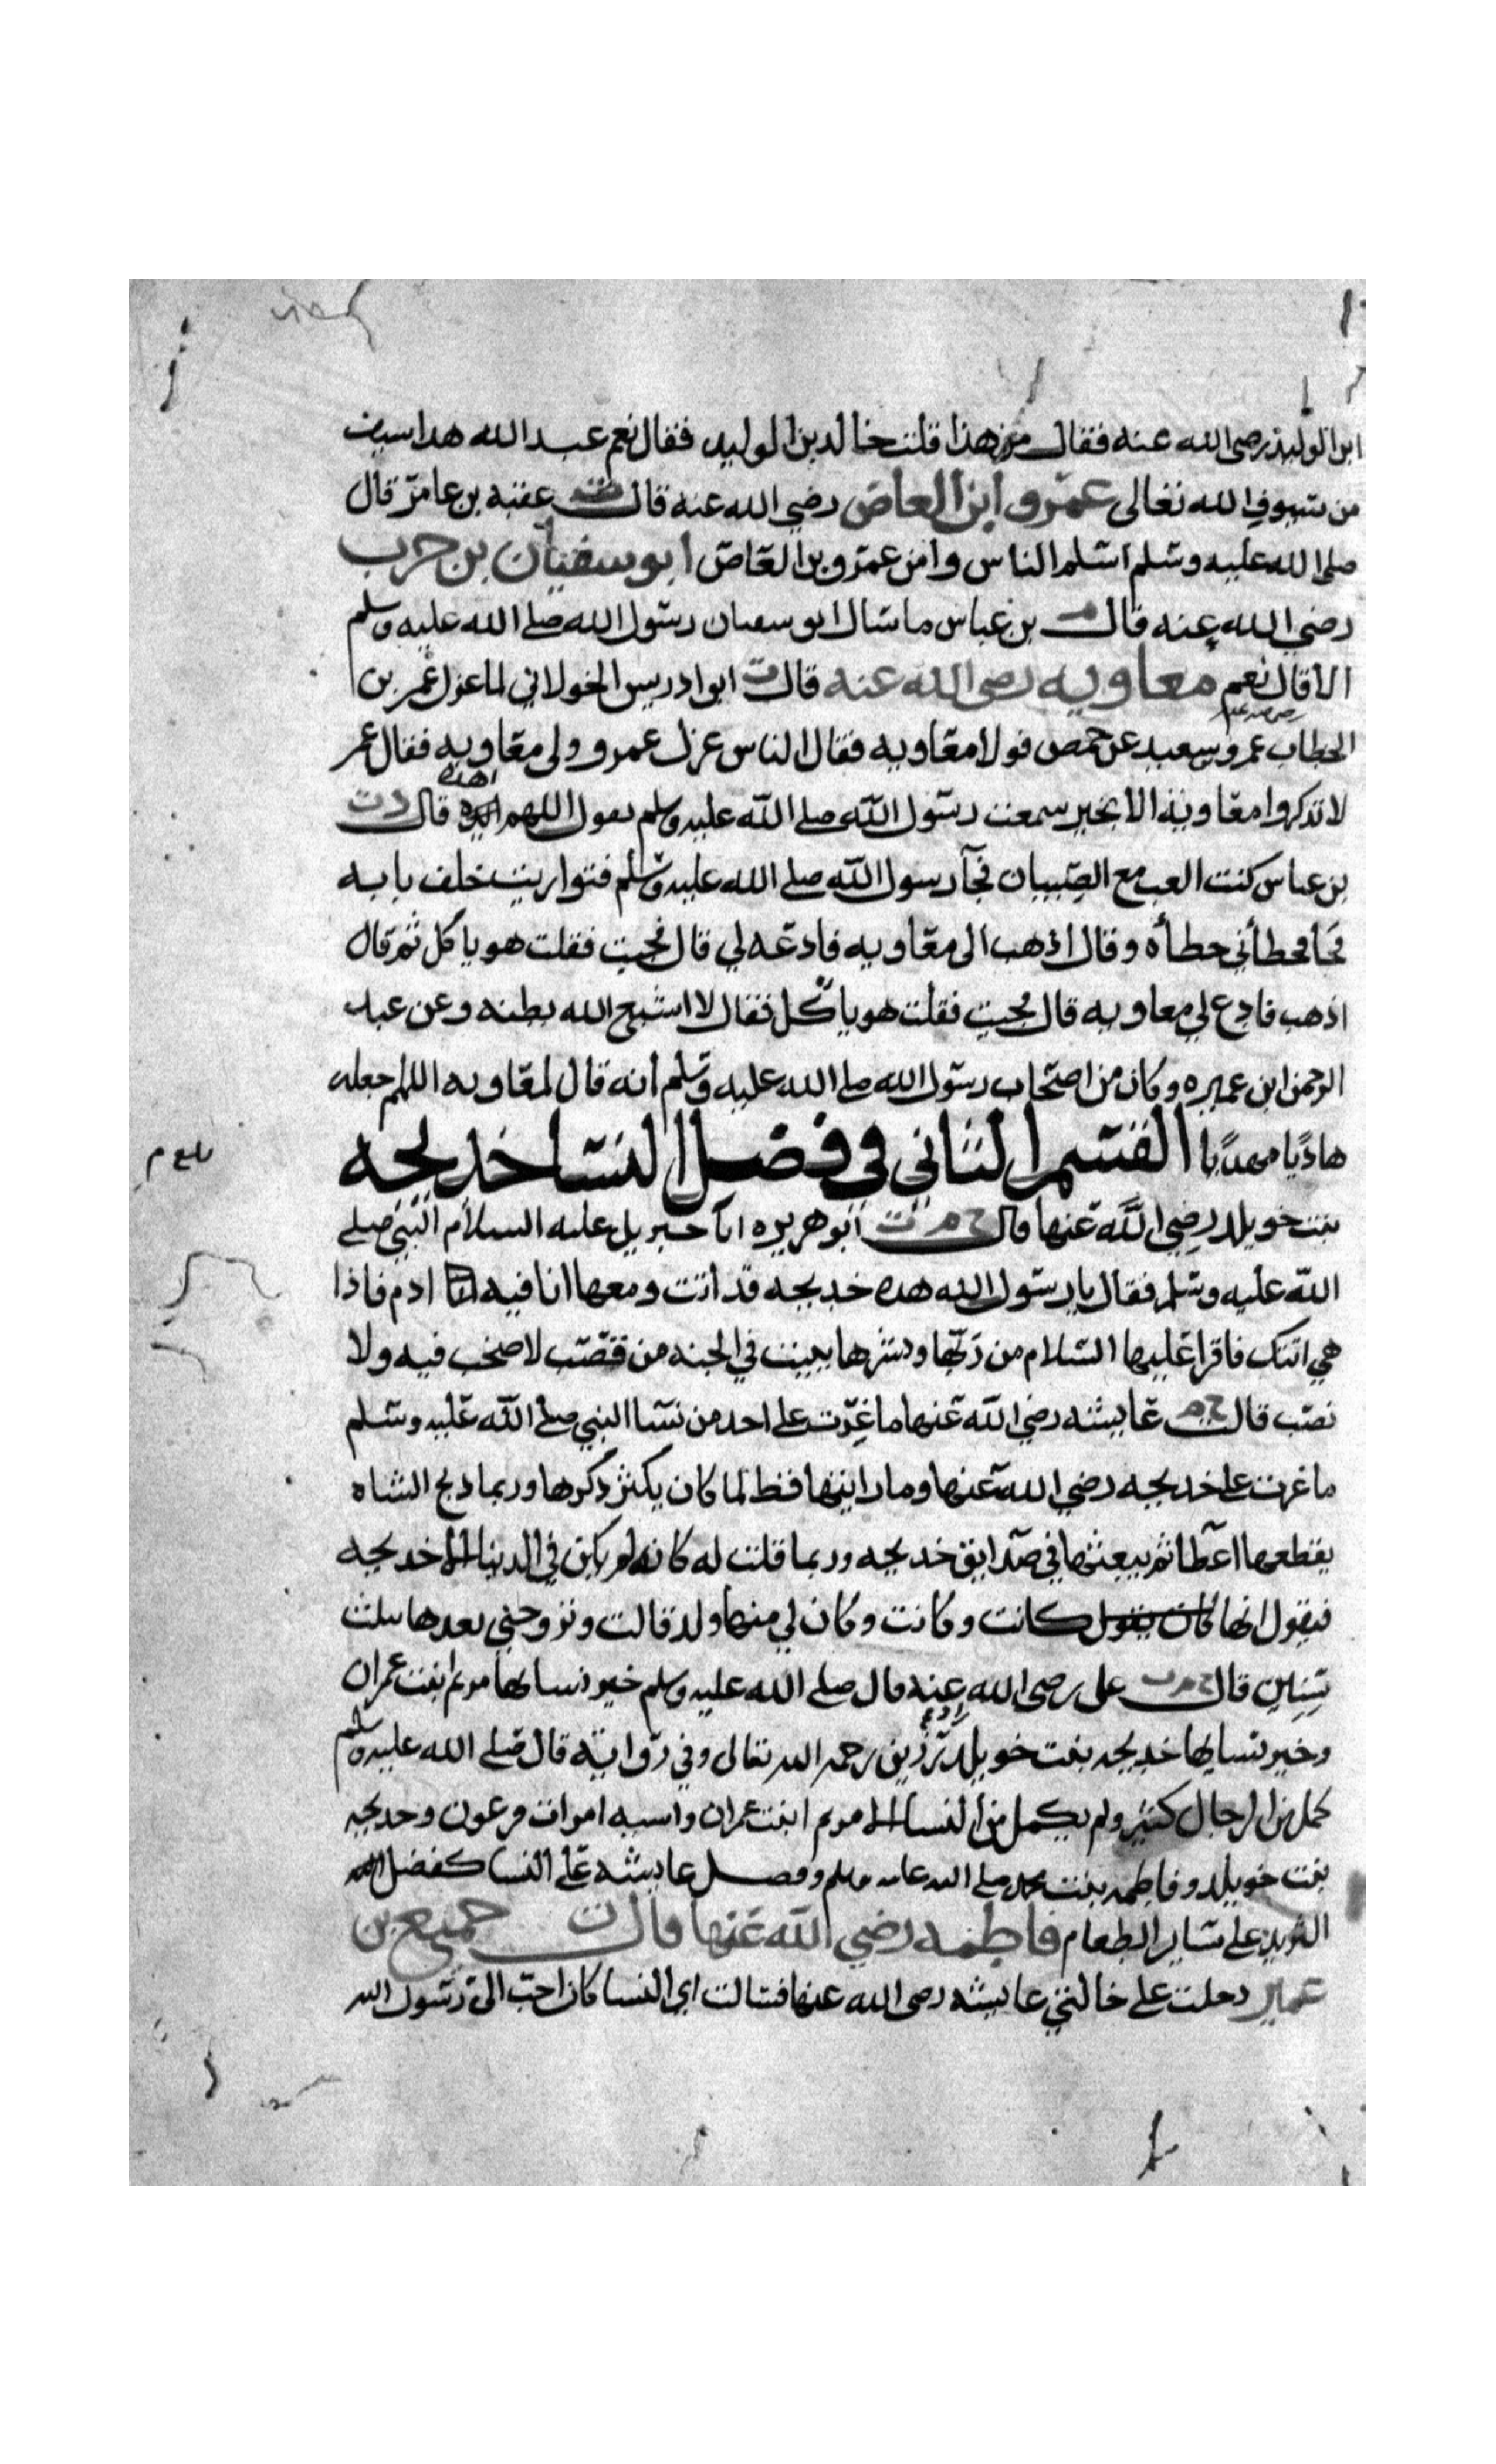 ابن الوليد رضي الله عنه فقال من هذا قلت خالد بن الوليد فقال نعم عبد الله هذا سيف
من سيوف الله تعالى عمرو ابن العاص رضي الله عنه قال ت عقبة بن عامر قال
صلى الله عليه وسلم اسلم الناس وامن عمرو بن العاص ابو سفيان بن حرب
رضي الله عنه قال م بن عباس ما سال ابو سفيان رسول الله صلى الله عليه وسلم
الا قال نعم معاويه رضي الله عنه قال ت ابو ادريس الخولاني لما عزل عمر بن
الخطاب رضي الله عنه عمرو سعيد عن حمص فولا معاويه فقال الناس عزل عمرو وولى معاويه فقال عمر
لا تذكروا معاوية الا بخير سمعت رسول الله صلى الله عليه وسلم يقول اللهم اهده قال
بن عباس كنت العب مع الصبيان فجآ رسول الله صلى الله عليه وسلم فتواريت خلف بابه
فجا فحطأني حطأه وقال اذهب الى معاويه فادعه لي قال فجيت فقلت هو ياكل ثم قال
اذهب فادع لي معاويه قال فجيت فقلت هو ياكل فقال لا اشبع الله بطنه وعن عبد
الرحمن ابن عميره وكان من اصحاب رسول الله صلى الله عليه وسلم انه قال لمعاويه اللهم جعله
هاديا مهديا القسم الثاني في فضل النسا خديجه
بنت خويلد رضي الله عنها قال خ م ت ابو هريره اتا جبريل عليه السلام النبي صلى
الله عليه وسلم فقال يا رسول الله هده خديجه قد اتت ومعها انا فيه ادم فاذا
هي اتتك فاقرا عليها السلام من ربها وبشرها ببيت في الجنه من قصب لا صخب فيه ولا
نصب قال خ م عايشه رضي الله عنها ما غرت على احد من نسا النبي صلى الله عليه وسلم
ما غرت على خديجه رضي الله عنها وما رايتها قط لما كان يكثر ذكرها وربما ذبح الشاه
يقطعها اعطا ثم يبعثها في صدايق خديجه وربما قلت له كانه لم يكن في الدينا الا خديجه
فيقول انها كان يقول كانت وكانت وكان لي منها ولد قالت وتزوجني بعدها بثلث
سنين قال خ م ت على رضي الله عنه قال صلى الله عليه وسلم خير نسايها مريم ابنت عمران
وخير نسايها خديجه بنت خويلد رزين رحمه الله تعالى وفي رواية قال صلى الله عليه وسلم
كمل من الرجال كثير ولم يكمل من النسا الا مريم ابنت عمران واسيه امرات فرعون وخديجه
بنت خويلد وفاطمه بنت محمد صلى الله عليه وسلم وفضل عايشه على النسا كفضل
الثريد على ساير الطعام فاطمه رضي الله عنها قال ت جميع بن
عمير دخلت على خالتي عايشه رضي الله عنها فسالت اي النسا كان احب الى رسول الله